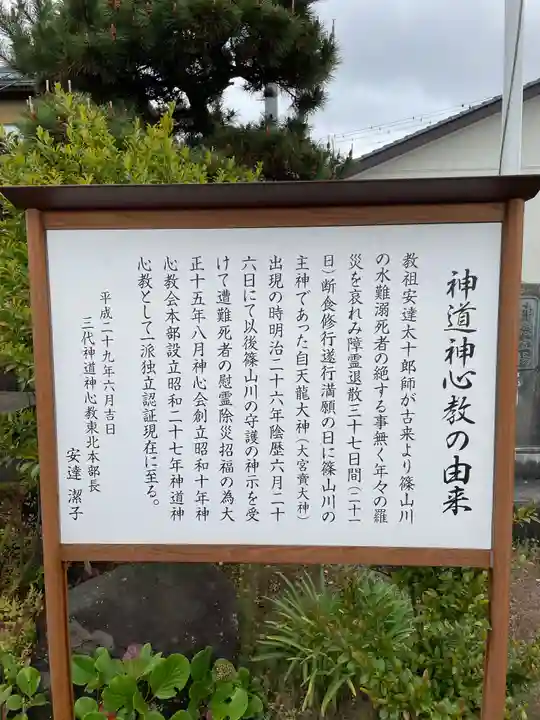 神道神心教の由来
教祖安達太十郎師が古来より篠山川
の水難溺死者の絶する事無く年々の羅
災を哀れみ障霊退散三十七日間(二十一
日)断食修行遂行満願の日に篠山川の
主神であった自天龍大神(大宮賣大神)
出現の時明治二十六年陰歴六月二十
六日にて以後篠山川の守護の神示を受
けて遭難死者の慰霊除災招福の為大
正十五年八月神心会創立昭和十年神
心教会本部設立昭和二十七年神道神
心教として一派独立認証現在に至る。
平成二十九年六月吉日
三代神道神心教東北本部長
安達 潔子